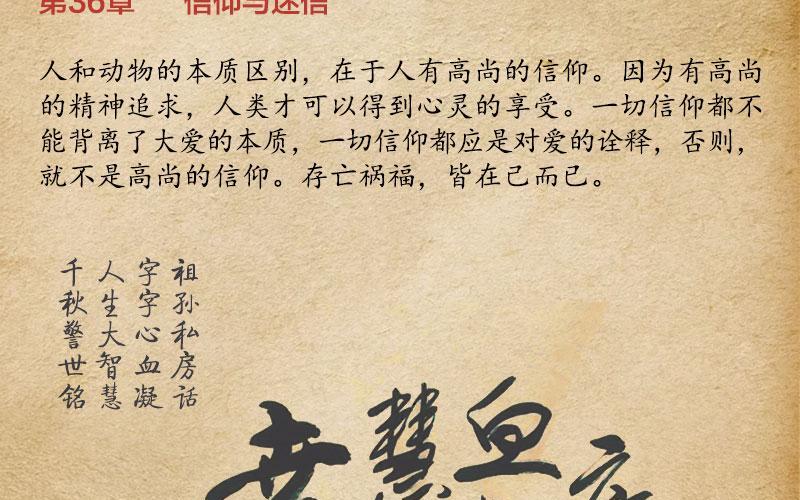 第36章 信仰与迷信
人和动物的本质区别，在于人有高尚的信仰。因为有高尚
的精神追求，人类才可以得到心灵的享受。一切信仰都不
能背离了大爱的本质，一切信仰都应是对爱的诠释，否则，
就不是高尚的信仰。存亡祸福，皆在己而已。
祖孙私房话
字字心血凝
人生大智慧
千秋警世铭
慧
血